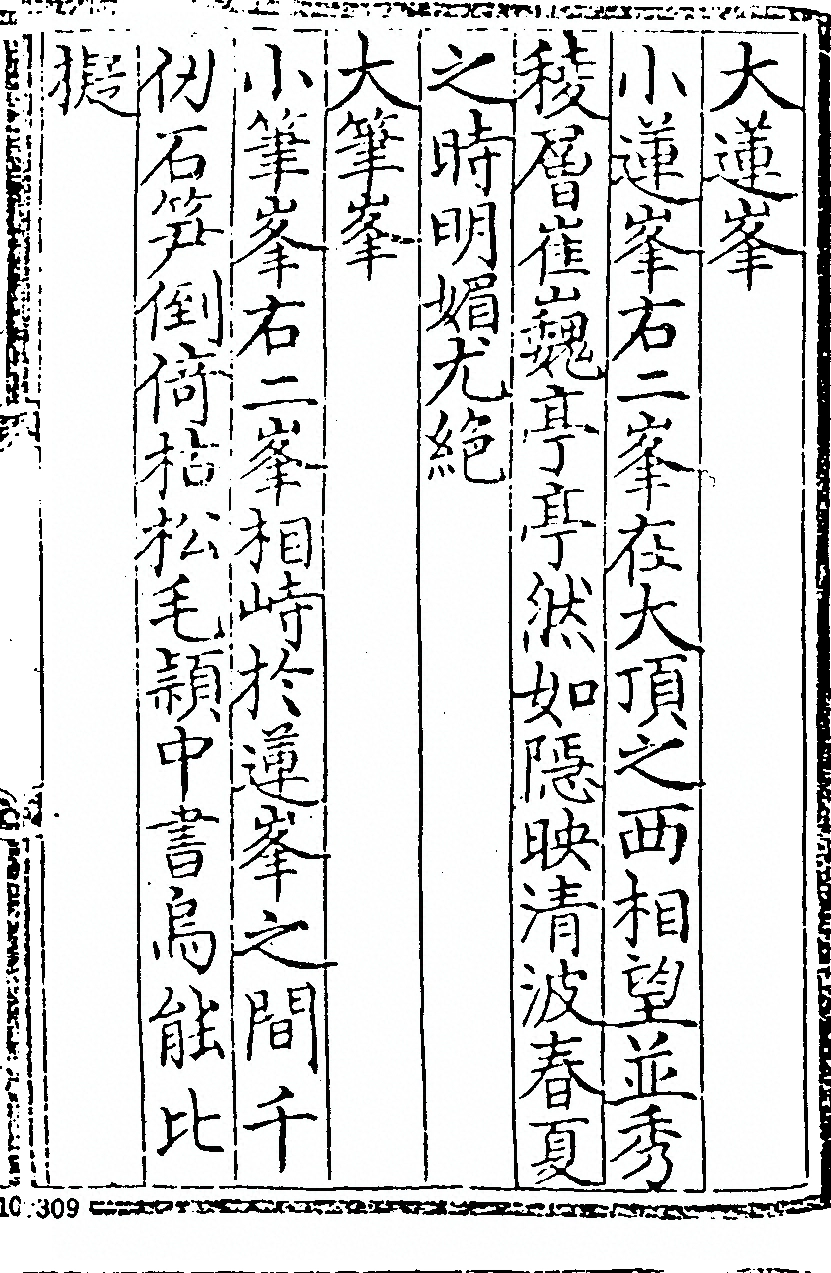 大蓮峯
小蓮峯右二峯在大頂之西相望並秀
稜層崔巍亭亭然如隱映清波春夏
之時明媚尤絕
大筆峯
小筆峯右二峯相峙於蓮峯之間千
仞石笋倒倚枯松毛穎中書烏能比
擬
10:309